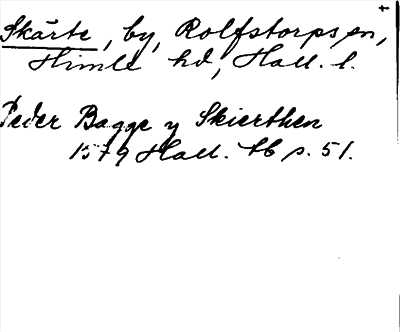 Skärte, by, Rolfstorps sn,
Himle hd, Hall. l.
Peder Bagge y Skierthen
1579 Hall. tb p. 51.